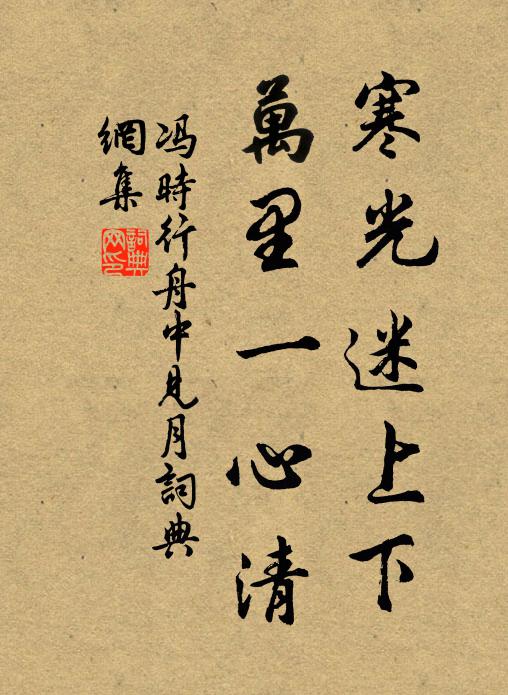 寒光迷上下
萬里一心清
馮時行舟中見月詞典
網集
詞典
網印